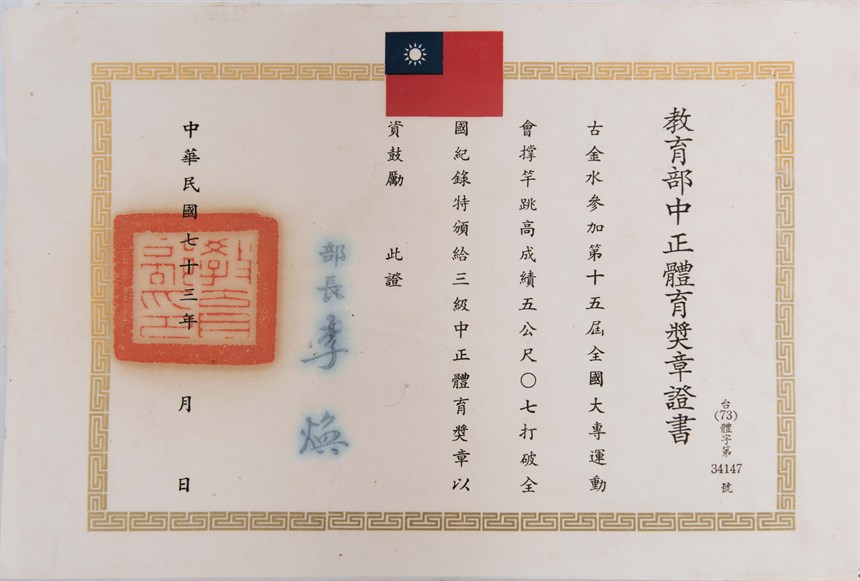 教育部中正體育獎章證書
台(73)體字第34147號
古金水參加第十五屆全國大專運動
會撐竿跳高成績五公尺〇七打破全
國紀錄特頒給三級中正體育獎章以
資鼓勵 此證
部長李煥
中華民國七十三年 月 日
教育部印